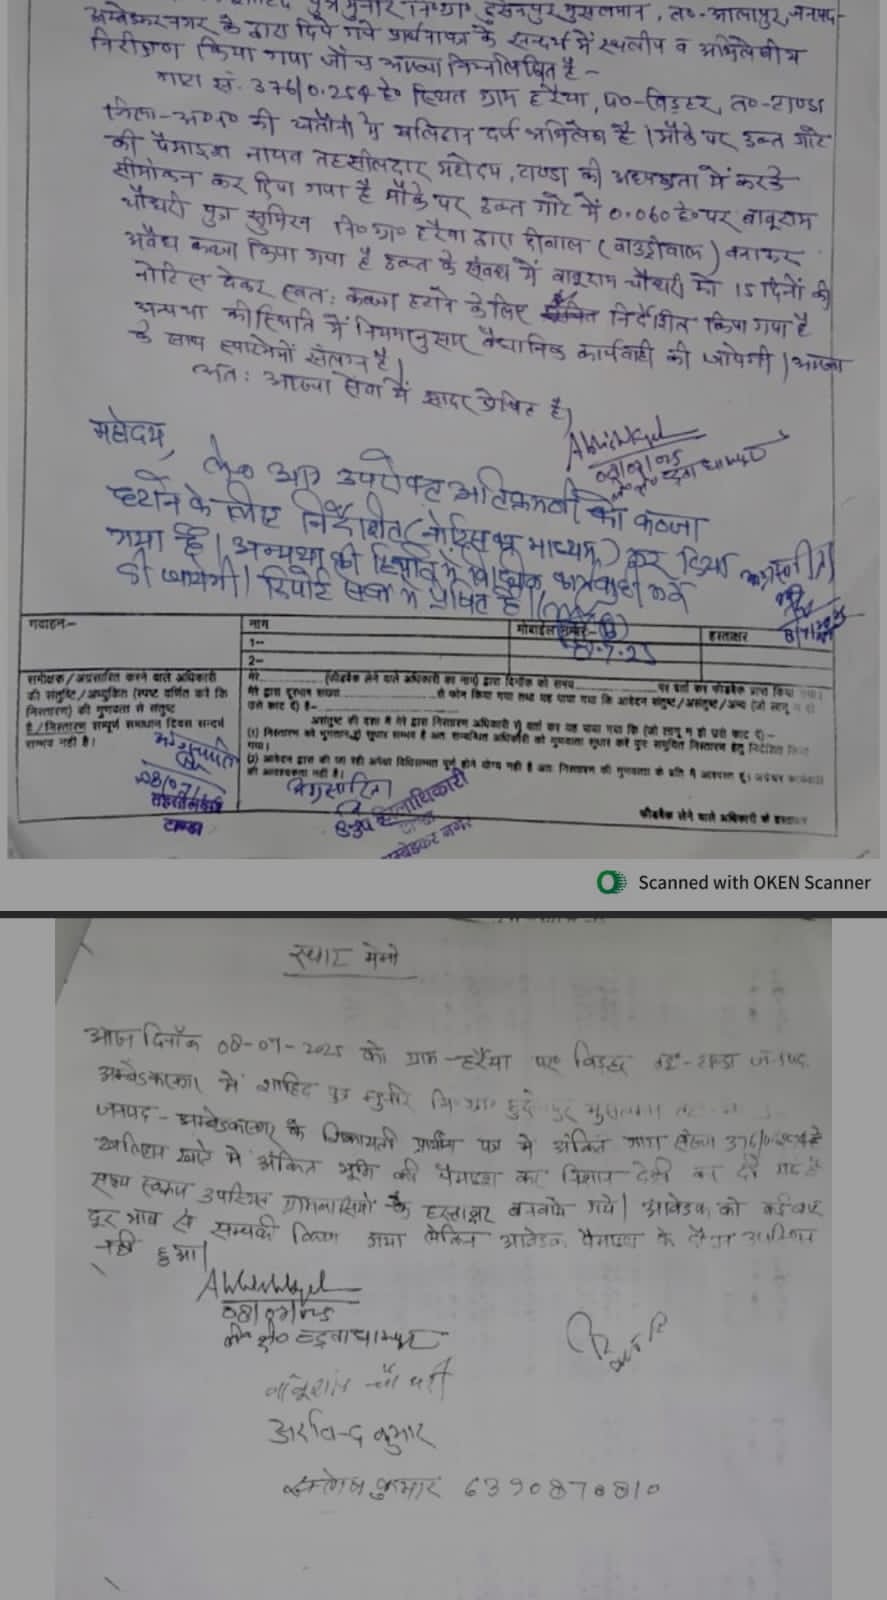 पुत्र मुनीर नि०ग्रा० हुसेनपुर मुसलमान, त०-आलापुर, जनपद-
अम्बेडकरनगर के द्वारा दिये गये प्रार्थनापत्र के सन्दर्भ में स्थलीय व अभिलेखीय
निरीक्षण किया गया जाँच आख्या निम्नलिखित है -
गाटा सं. 376/0.254 हे० स्थित ग्राम हरैया, प०-विड़हर, त०-टाण्डा
जिला-अ०न० की खतौनी में खलिहान दर्ज अभिलेख है। मौके पर उक्त गाटे
की पैमाइश नायब तहसीलदार महोदय, टाण्डा की अध्यक्षता में करके
सीमांकन कर दिया गया है मौके पर उक्त गाटे में 0.060 हे० पर बाबूराम
चौधरी पुत्र सुमिरन नि०ग्रा० हरैया द्वारा दीवाल (बाउंड्रीवाल) बनाकर
अवैध कब्जा किया गया है उक्त के संबंध में बाबूराम चौधरी को 15 दिनों की
नोटिस देकर स्वत: कब्जा हटाने के लिए निर्देशित किया गया है
अन्यथा की स्थिति में नियमानुसार वैधानिक कार्यवाही की जायेगी। आख्या
के साथ स्थलमेमों संलग्न है।
अत: आख्या सेवा में सादर प्रेषित है।
08/07/25
महोदय,
उपरोक्त अतिक्रमणी को कब्जा
हटाने के लिए निर्देशित (नोटिस के माध्यम) कर दिया
गया है। अन्यथा की स्थिति में विधिक कार्यवाही
की जायेगी। रिपोर्ट सेवा में प्रेषित है।
गवाहान:-
नाम
मोबाईल नम्बर-
हस्ताक्षर
1--
2--
8.7.25
समीक्षक/अग्रसारित करने वाले अधिकारी
की संतुष्टि/अभ्युक्ति (स्पष्ट वर्णित करें कि
निस्तारण) की गुणवत्ता से संतुष्ट
है/निस्तारण सम्पूर्ण समाधान दिवस सन्दर्भ
सम्भव नहीं है।
मेरे (फीडबैक लेने वाले अधिकारी का नाम) द्वारा दिनांक को समय पर वार्ता कर फीडबैक प्राप्त किया गया।
मेरे द्वारा दूरभाष संख्या से फोन किया गया तथा यह पाया गया कि आवेदन संतुष्ट/असंतुष्ट/अन्य (जो लागू न हो
उसे काट दे) :-
असंतुष्ट की दशा में मेरे द्वारा निस्तारण अधिकारी से वार्ता कर यह पाया गया कि (जो लागू न हो उसे काट दे) :-
(1) निस्तारण की गुणवत्ता में सुधार सम्भव है अतः सम्बन्धित अधिकारी को गुणवत्ता सुधार करें पुनः समुचित निस्तारण हेतु निर्देशित किया
गया।
(2) आवेदन द्वारा की जा रही अपेक्षा विधिसम्मत पूर्ण होने योग्य नही है अतः निस्तारण की गुणवत्ता के प्रति मै आश्वस्त हूं। अग्रेतर कार्यवाही
की आवश्यकता नही है।
फीडबैक लेने वाले अधिकारी के हस्ताक्षर
08/07/25
तहसीलदार
टाण्डा
अग्रसारित
उप जिलाधिकारी
टाण्डा
अम्बेडकर नगर
Scanned with OKEN Scanner
स्थल मेमो
आज दिनाँक 08-07-2025 को ग्राम-हरैया प० विड़हर त०-टाण्डा जनपद
अम्बेडकरनगर में शाहिद पुत्र मुनीर नि०ग्रा० हुसेनपुर मुसलमान
जनपद-अम्बेडकरनगर के शिकायती प्रार्थना पत्र में अंकित गाटा संख्या 376/0.254 हे
खलिहान खाते में अंकित भूमि की पैमाइश कर निशान देही कर दी गई है
साक्ष्य स्वरूप उपस्थित ग्रामवासियों के हस्ताक्षर बनवाये गये। आवेदक को कई बार
दूर भाष से सम्पर्क किया गया लेकिन आवेदक पैमाइश के दौरान उपस्थित
नही हुआ।
08/07/25
बाबूराम चौधरी
अरविन्द कुमार
कुमार 6390870810